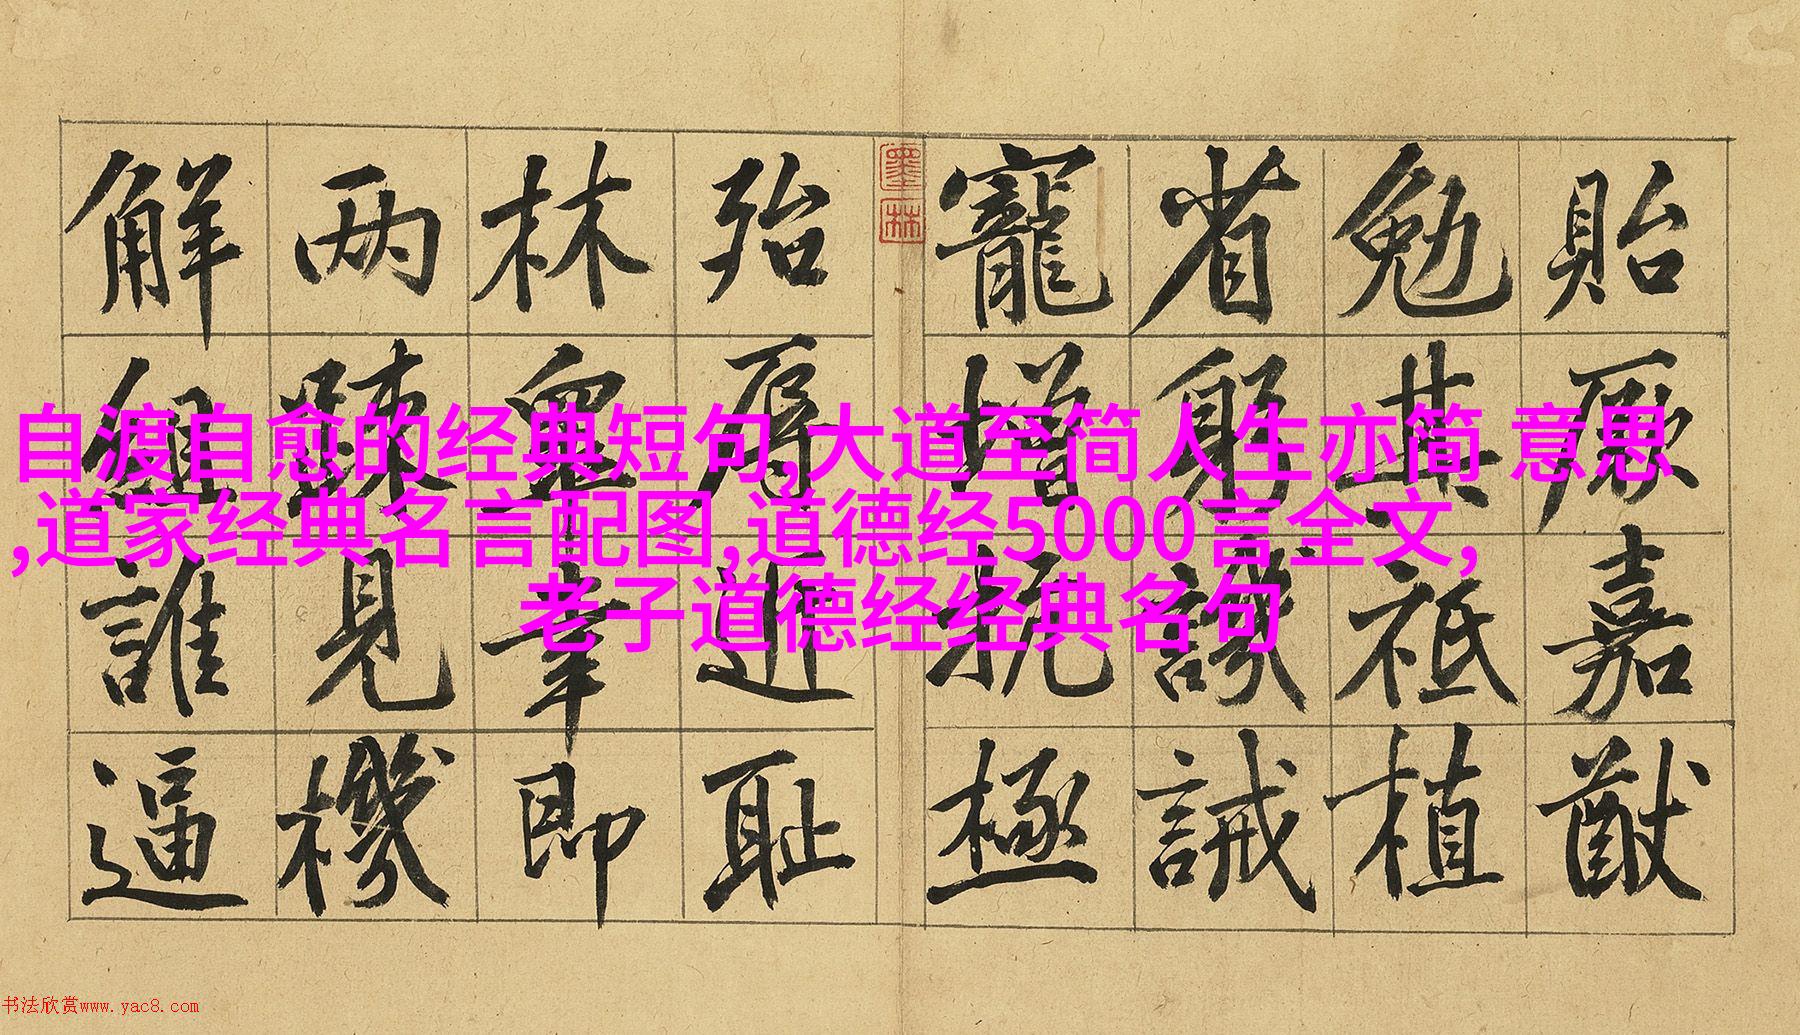 貽厥嘉猷
勉其祗植
省躬譏誡
寵增抗極
墨林
殆辱近耻
林皐幸即
两踈見機
解組誰逼
自渡自愈的经典短句,大道至简人生亦简 意思
,道家经典名言配图,道德经5000言全文,
老子道德经经典名句
书法欣赏www.yac8.com